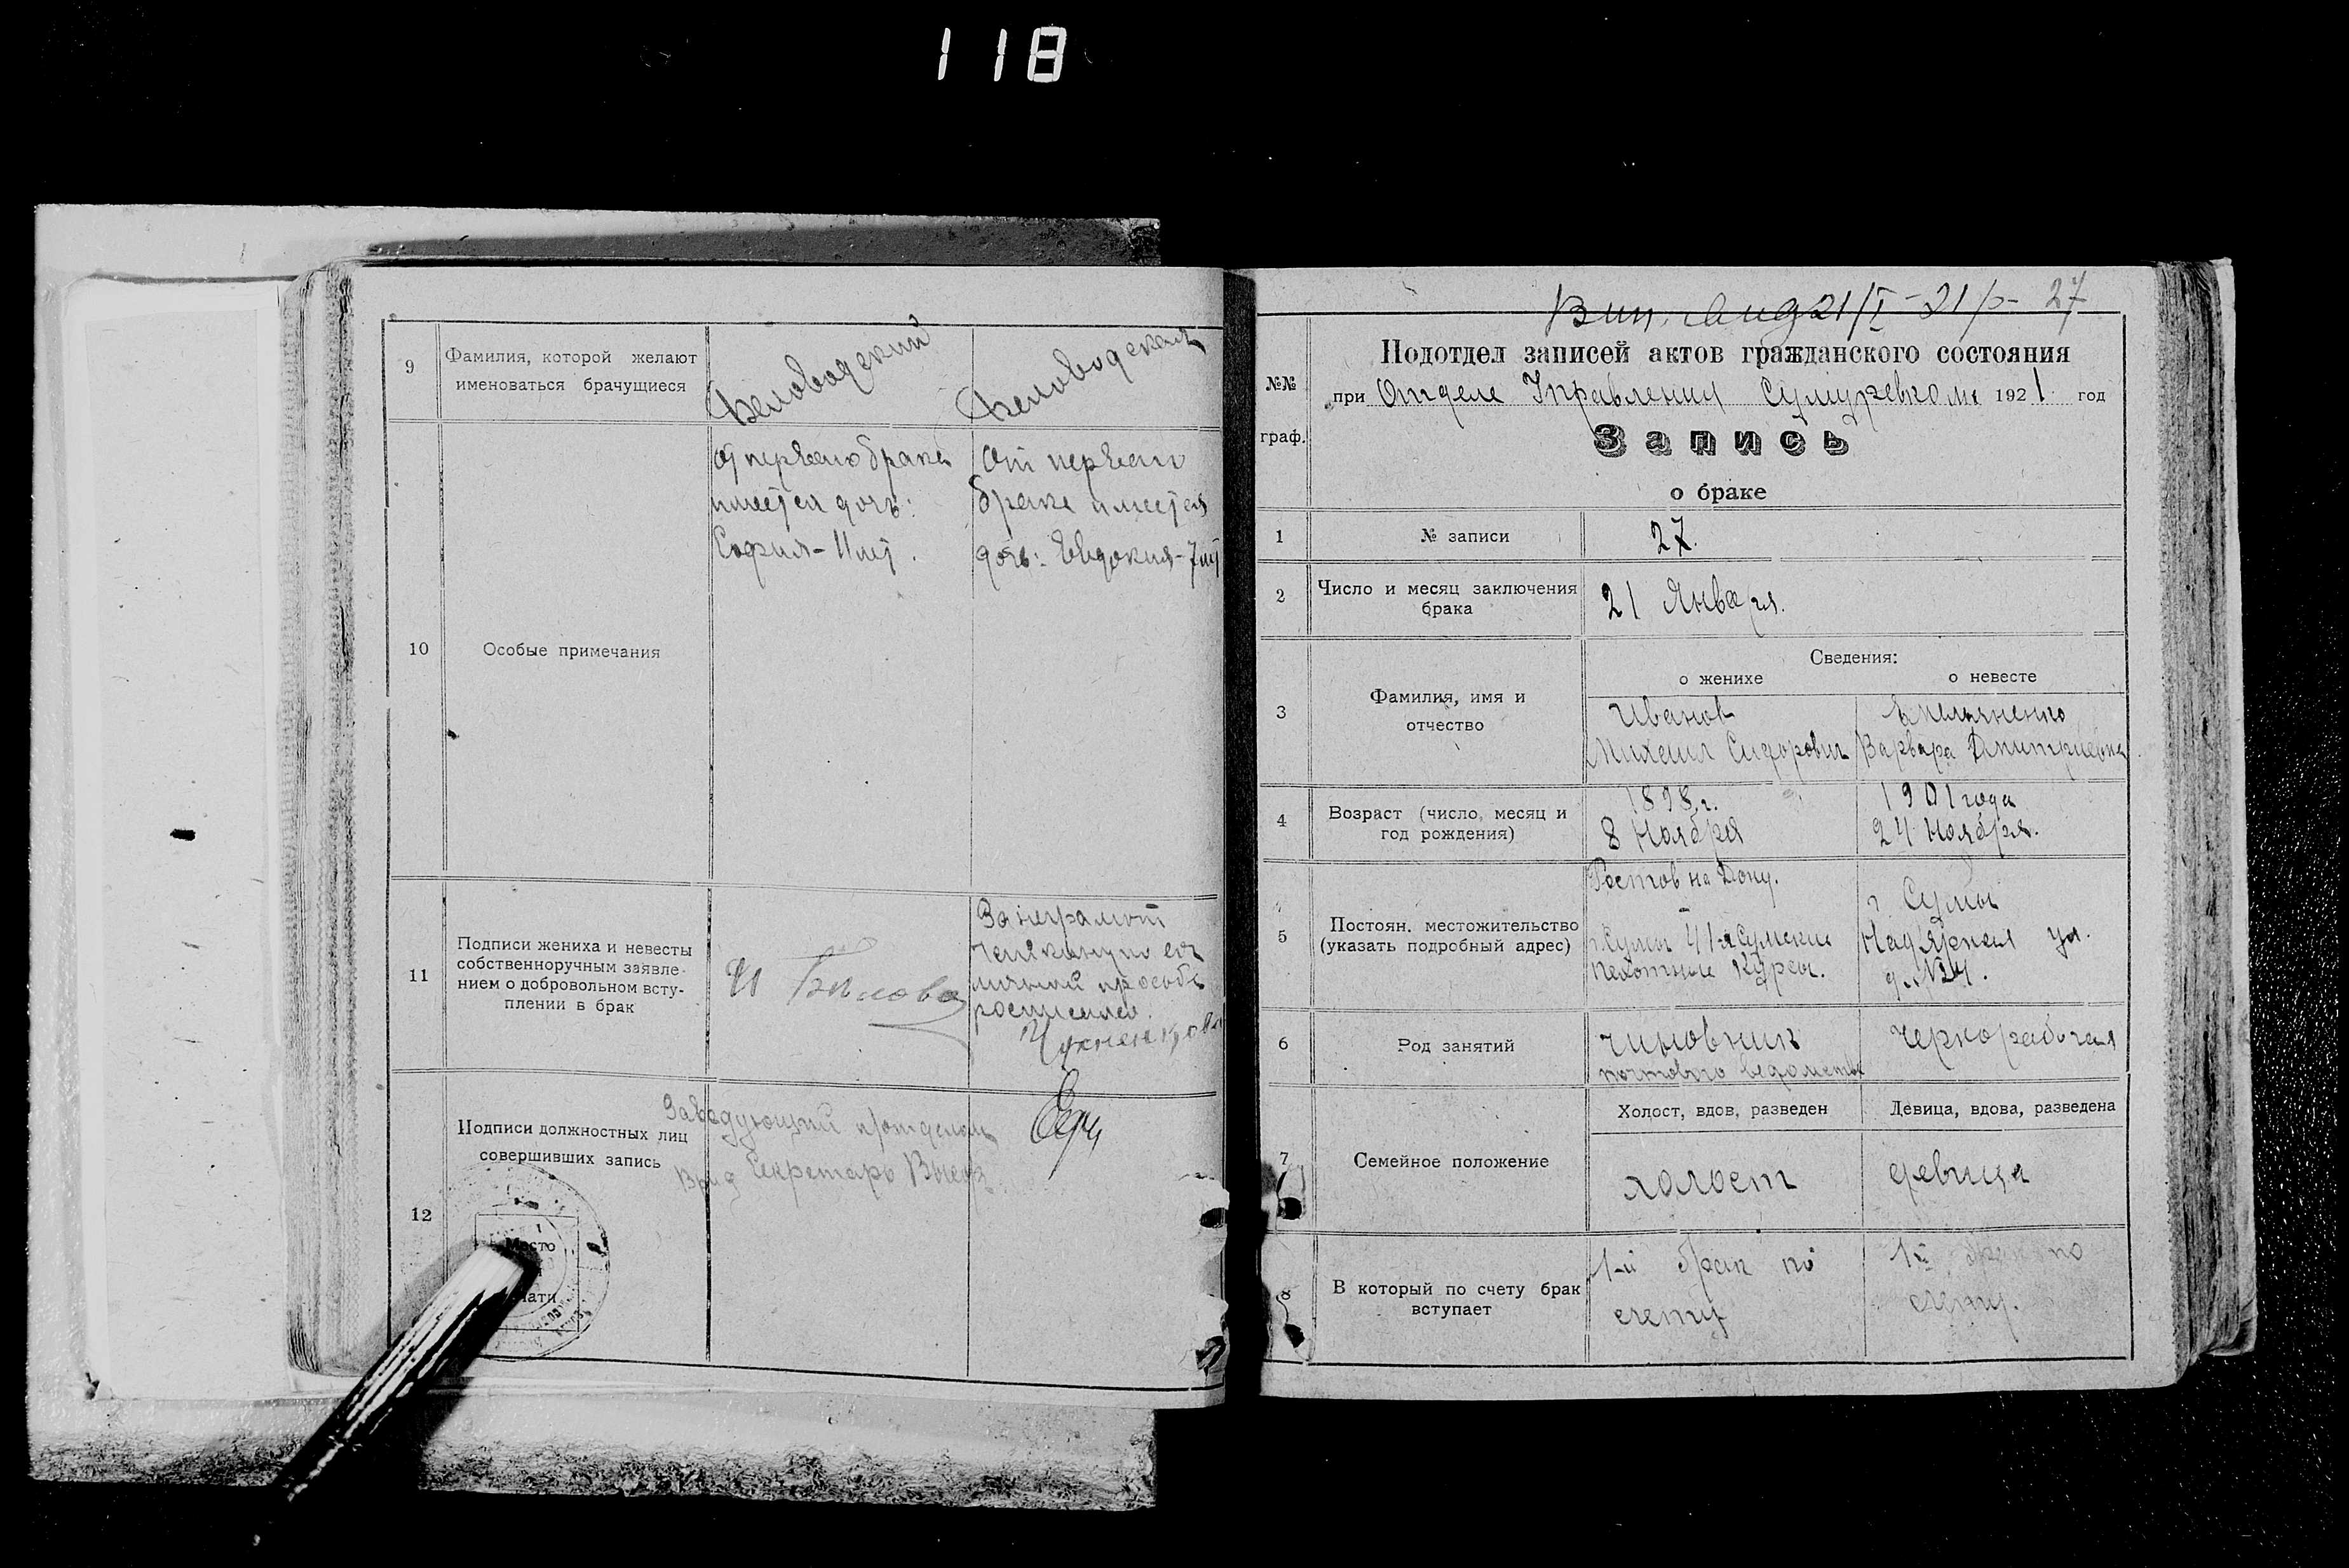 118
9
Фамилия, которой желают
именоваться брачущиеся
Беловодский
Беловодская
10
Особые примечания
От первого брака
имеется дочь:
София - 11 лет.
От первого
брака имеется
дочь: Евдокия - 7 лет
11
Подписи жениха и невесты
собственноручным заявле-
нием о добровольном всту-
плении в брак
И
За неграмот
личной просьбе
росписался.
12
Подписи должностных лиц
совершивших запись
Заведующий п/отделом
Врид Секретаря
Место
печати
Вып. 21/I-21 р- 27
№№
граф.
Подотдел записей актов гражданского состояния
при Отделе Управления Сумуревкома 1921 год
Запись
о браке
1
№ записи
27.
2
Число и месяц заключения
брака
21 Января.
3
Фамилия, имя и
отчество
Сведения:
о женихе
о невесте
Иванов
Михаил Сидорович
Емельяненко
Варвара Дмитриевна
4
Возраст (число, месяц и
год рождения)
1898 г.
8 Ноября
1901 года
24 Ноября.
5
Постоян. местожительство
(указать подробный адрес)
Ростов на Дону.
г. Сумы 77-я Сумские
Пехотные Курсы.
г Сумы
ул.
д. №24.
6
Род занятий
Чиновник
почтового ведомства
Чернорабочая
7
Семейное положение
Холост, вдов, разведен
Девица, вдова, разведена
холост
девица
8
В который по счету брак
вступает
1-й брак по
счету
1й брак по
счету.